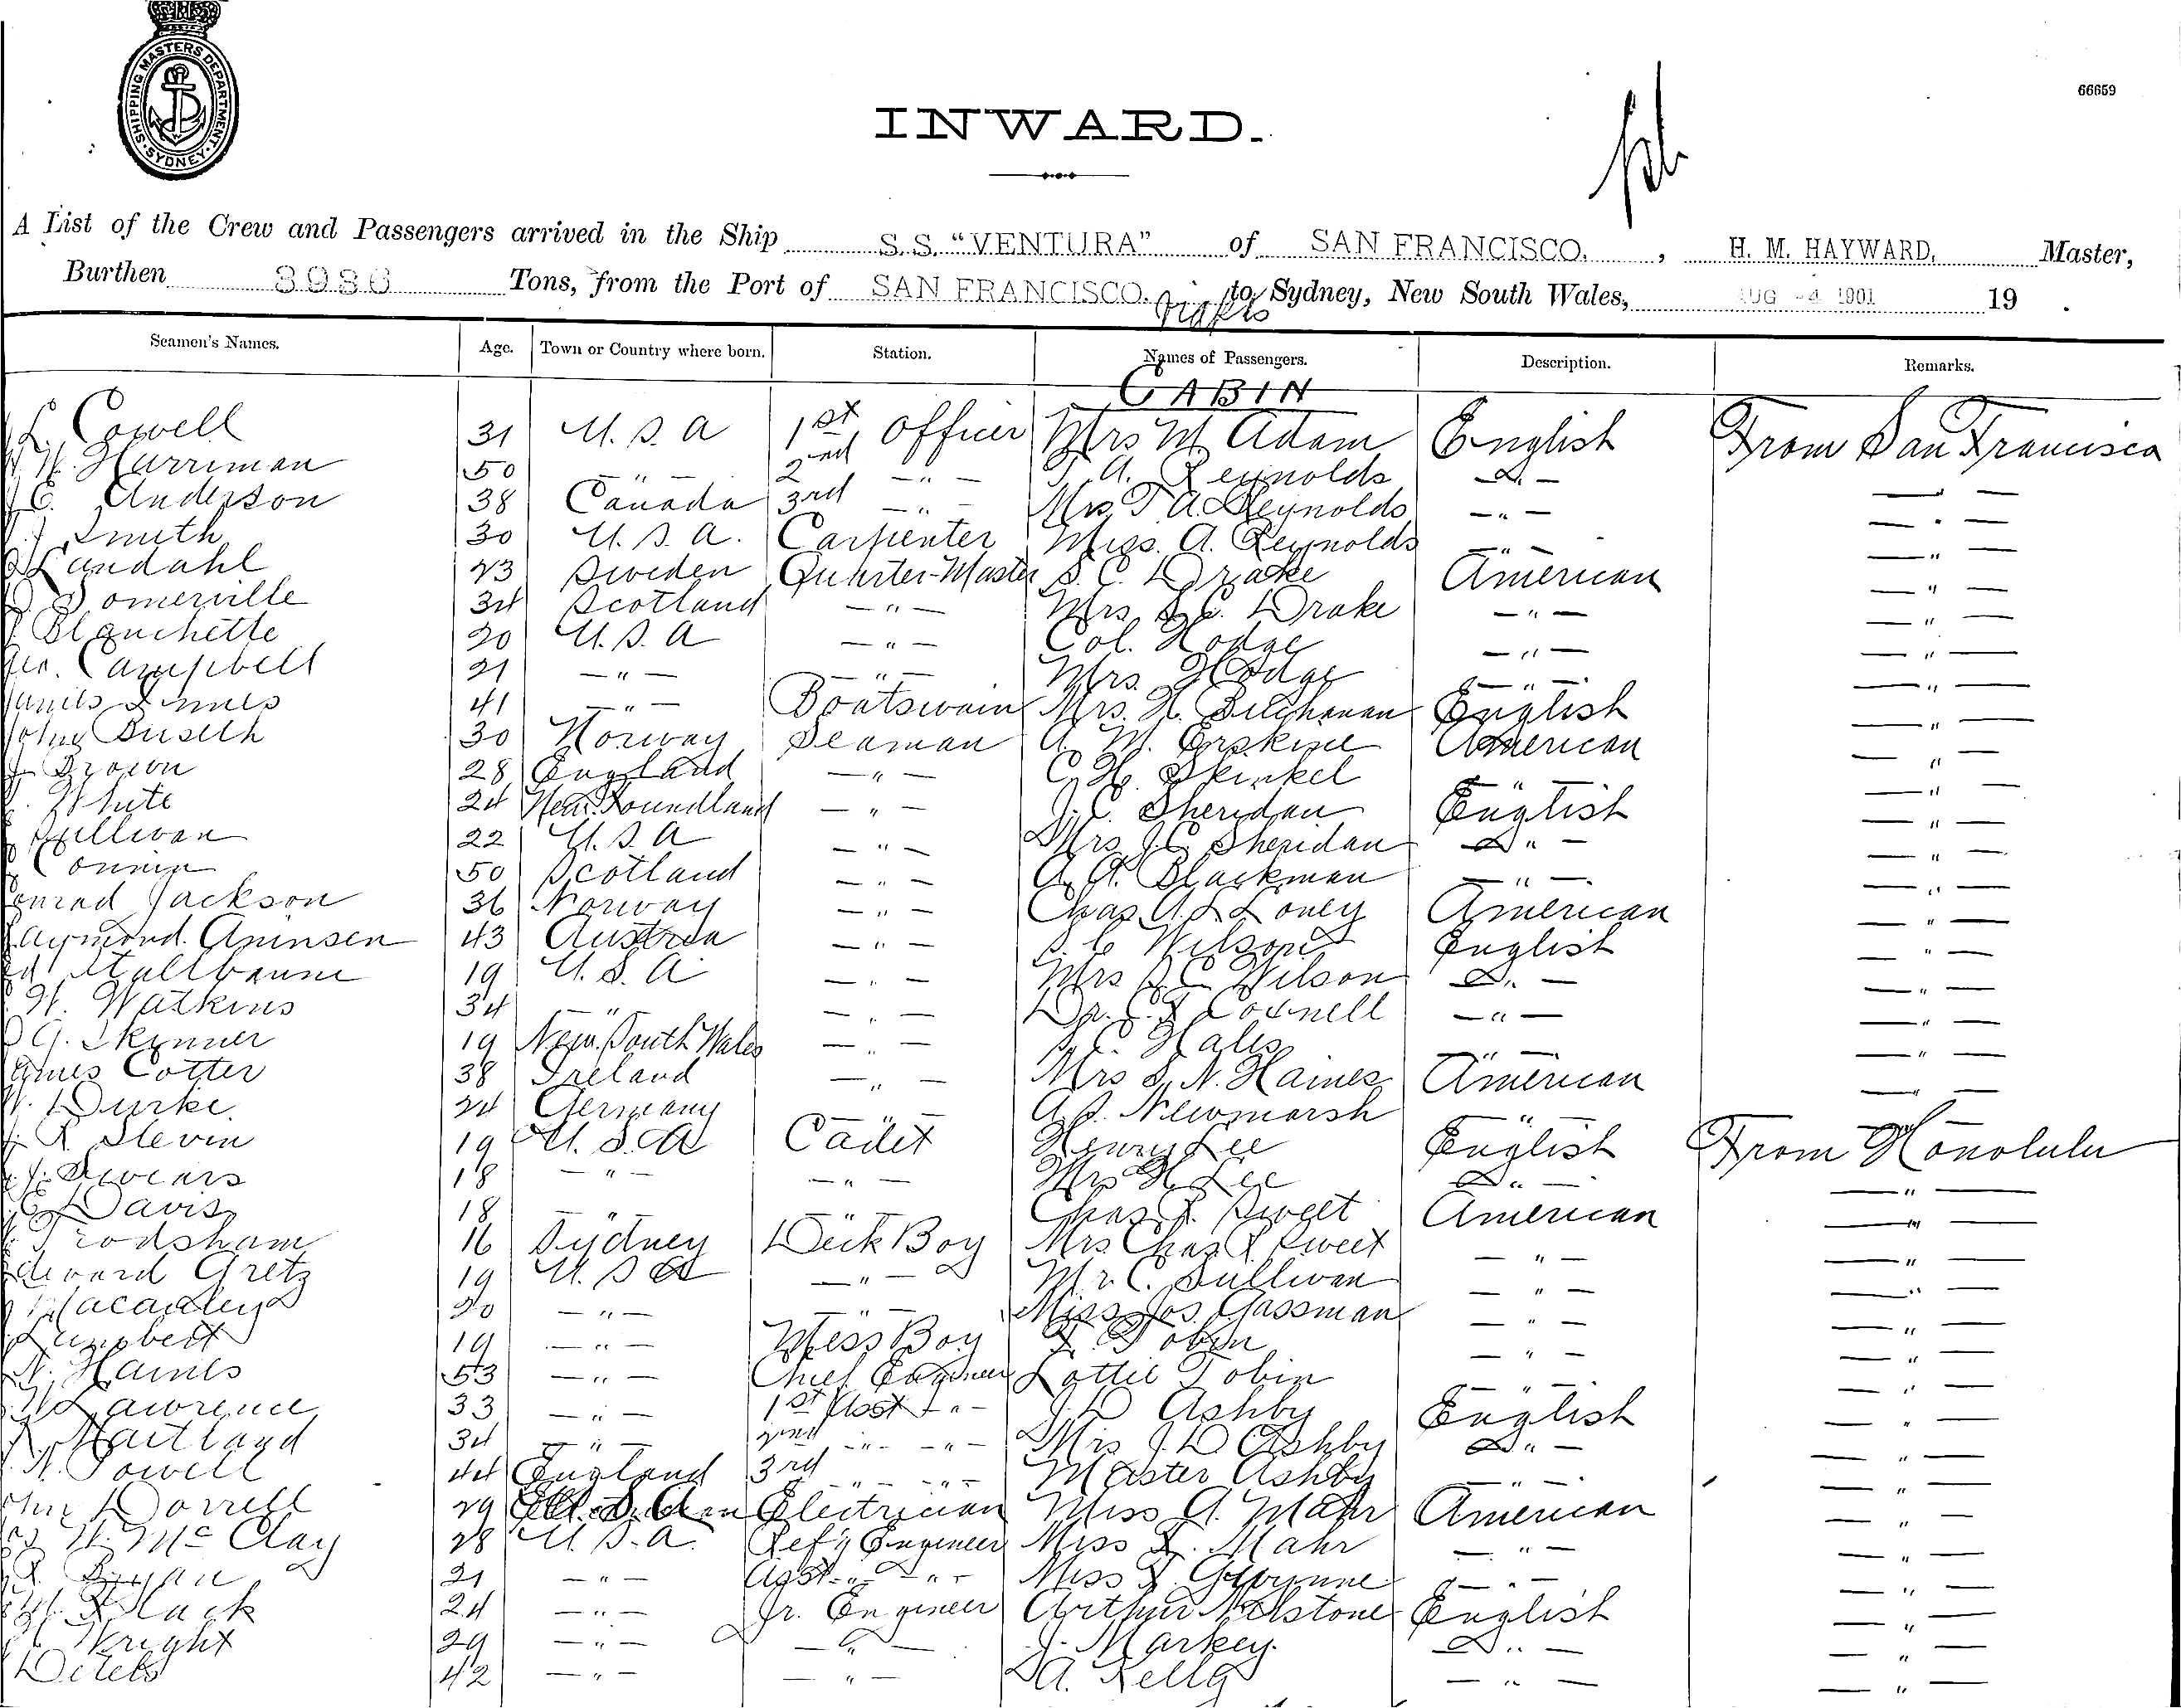 SHIPPING MASTERS DEPARTMENT SYDNEY
66659
INWARD.
A List of the Crew and Passengers arrived in the Ship S.S. "VENTURA" of SAN FRANCISCO, H. M. HAYWARD, Master,
Burthen 3986 Tons, from the Port of SAN FRANCISCO. to Sydney, New South Wales, AUG -4 1901 19 .
Seamen's Names. Age. Town or Country where born. Station. Names of Passengers. Description. Remarks.
CABIN
Cowell 31 U.S.A 1st Officer Mrs M. Adam English From San Francisco
Harriman 50 — " — 2nd — " — T. A. Reynolds D. —
C. Anderson 38 Canada 3rd — " — Mrs T A. Reynolds — " — — " —
Smith 30 U.S.A. Carpenter Miss. A. Reynolds — " — — " —
Landahl 23 Sweden Quarter-Master S. C. Drake American — " —
Somerville 34 Scotland — " — Mrs S. C. Drake — " — — " —
Blanchette 20 U.S.A — " — Col. Hodge — " — — " —
Geo. Campbell 21 — " — — " — Mrs. Hodge — " — — " —
James Innes 41 — " — Boatswain Mrs. H. Buchanan English — " —
30 Norway Seaman A. M. Erskine American — " —
Brown 28 England — " — C. H. Skinkel — " — — " —
White 24 New Foundland — " — J. C. Sheridan English — " —
Sullivan 22 U.S.A — " — Mrs J.C. Sheridan D. " — — " —
50 Scotland — " — A. A. Blackman — " — — " —
Conrad Jackson 36 Norway — " — Chas. American — " —
Raymond. Aninsen 43 Austria — " — S. C. Wilson English — " —
19 U.S.A — " — Mrs S C Wilson D. — — " —
W. Watkins 34 — " — — " — Dr. — " — — " —
G. Skynner 19 New South Wales — " — Hales — " — — " —
James Cotter 38 Ireland — " — Mrs S. N. Haines American — " —
Burke 24 Germany — " — A.S. Newmarsh — " — — " —
R Slevin 19 U.S.A Cadet Henry Lee English From Honolulu
18 — " — — " — Mrs H. Lee D. " — — " —
Davis 18 — " — — " — Chas. F. Sweet American — " —
Frodsham 16 Sydney Deck Boy Mrs Chas F Sweet — " — — " —
Edward Gretz 19 U.S.A — " — Mr C. Sullivan — " — — " —
Macauley 20 — " — — " — Miss Jos. Gassman — " — — " —
Lambert 19 — " — Mess Boy F. Tobin — " — — " —
N. Haines 53 — " — Chief Engineer Lottie Tobin — " — — " —
Lawrence 33 — " — 1st Asst — " — J. D Ashby English — " —
Maitland 34 — " — 2nd — " — — " — Mrs J. D Ashby D. " — — " —
Powell 44 England 3rd — " — — " — Master Ashby — " — — " —
John Dorrell 29 Electrician Miss A. Mahr American — " —
W. McClay 28 U.S.A. Ref'g Engineer Miss L. Mahr — " — — " —
Ryan 21 — " — Asst. " — " — Miss F. Gwynne — " — — " —
Black 24 — " — Jr. Engineer Arthur English — " —
Wright 29 — " — — " — J. Markey. D. " — — " —
42 — " — — " — A. Kelly — " — — " —